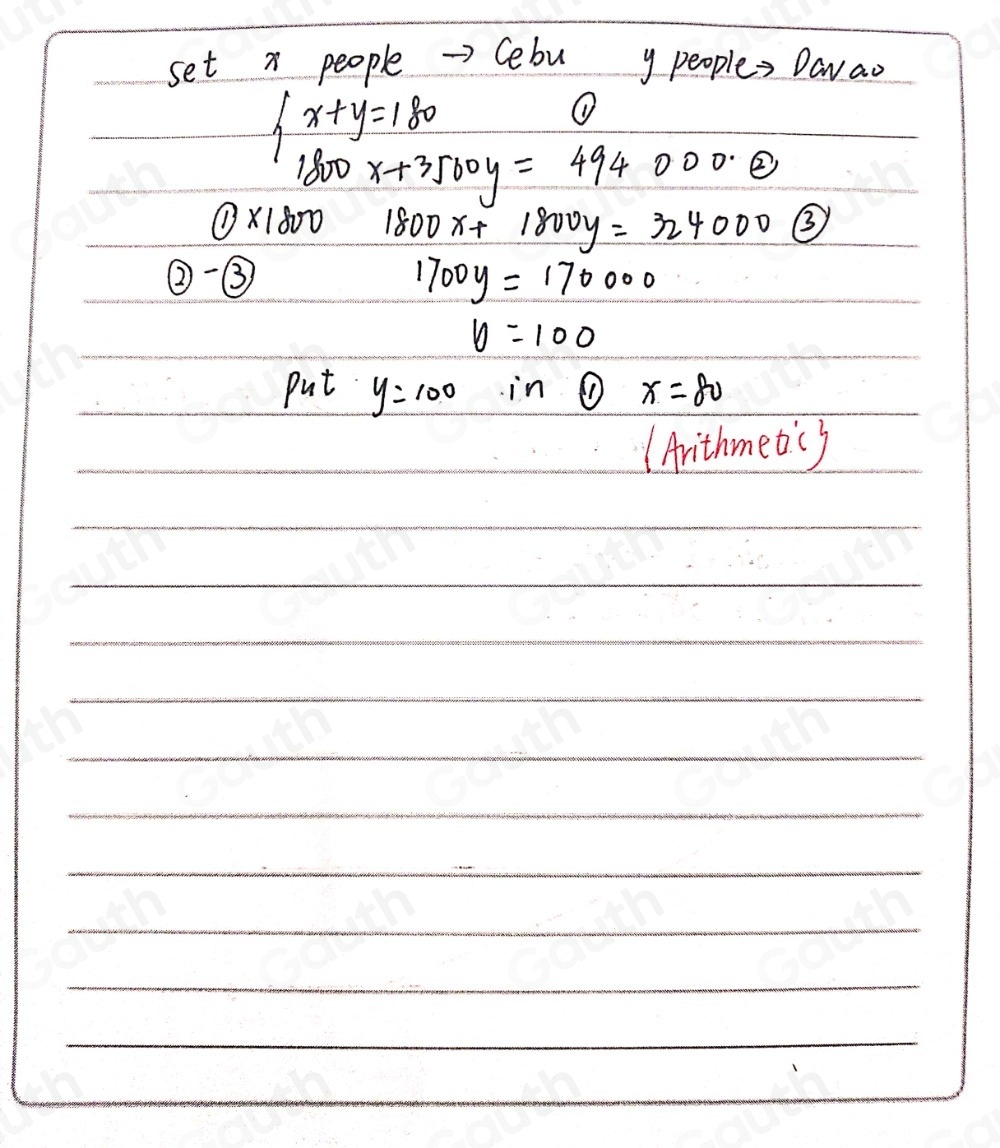 set x people → Cebu y people → Davao
{ x+y=180 ①
1800x+3500y = 494000. ②
①×1800 1800x+ 1800y = 324000 ③
②-③ 1700y = 170000
y = 100
put y=100 in ① x=80
{Arithmetic}
Gauth